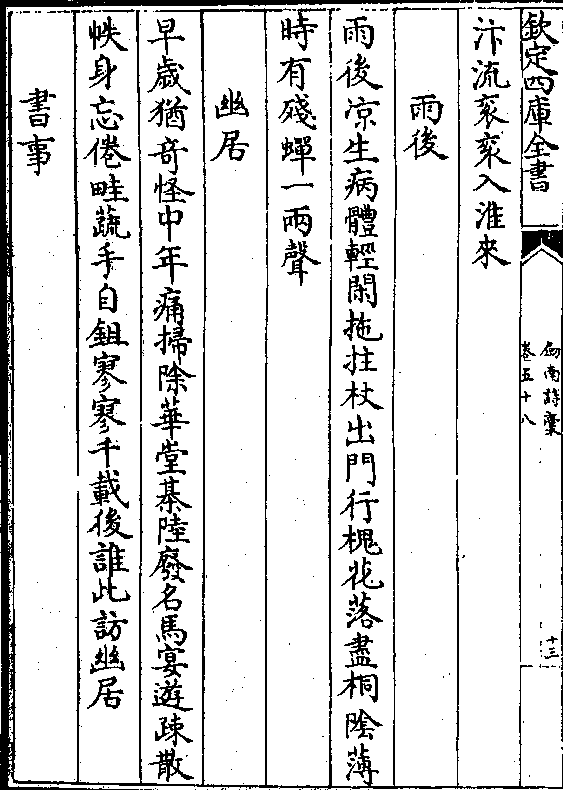 欽定四庫全書
劒南詩藁
卷五十八
十三
汴流袞袞入淮來
雨後
雨後凉生病體輕閑拖拄杖出門行槐花落盡桐陰薄
時有殘蟬一兩聲
幽居
早歲猶奇怪中年痛掃除華堂棊陸廢名馬宴遊疎散
帙身忘倦畦蔬手自鉏寥寥千載後誰此訪幽居
書事